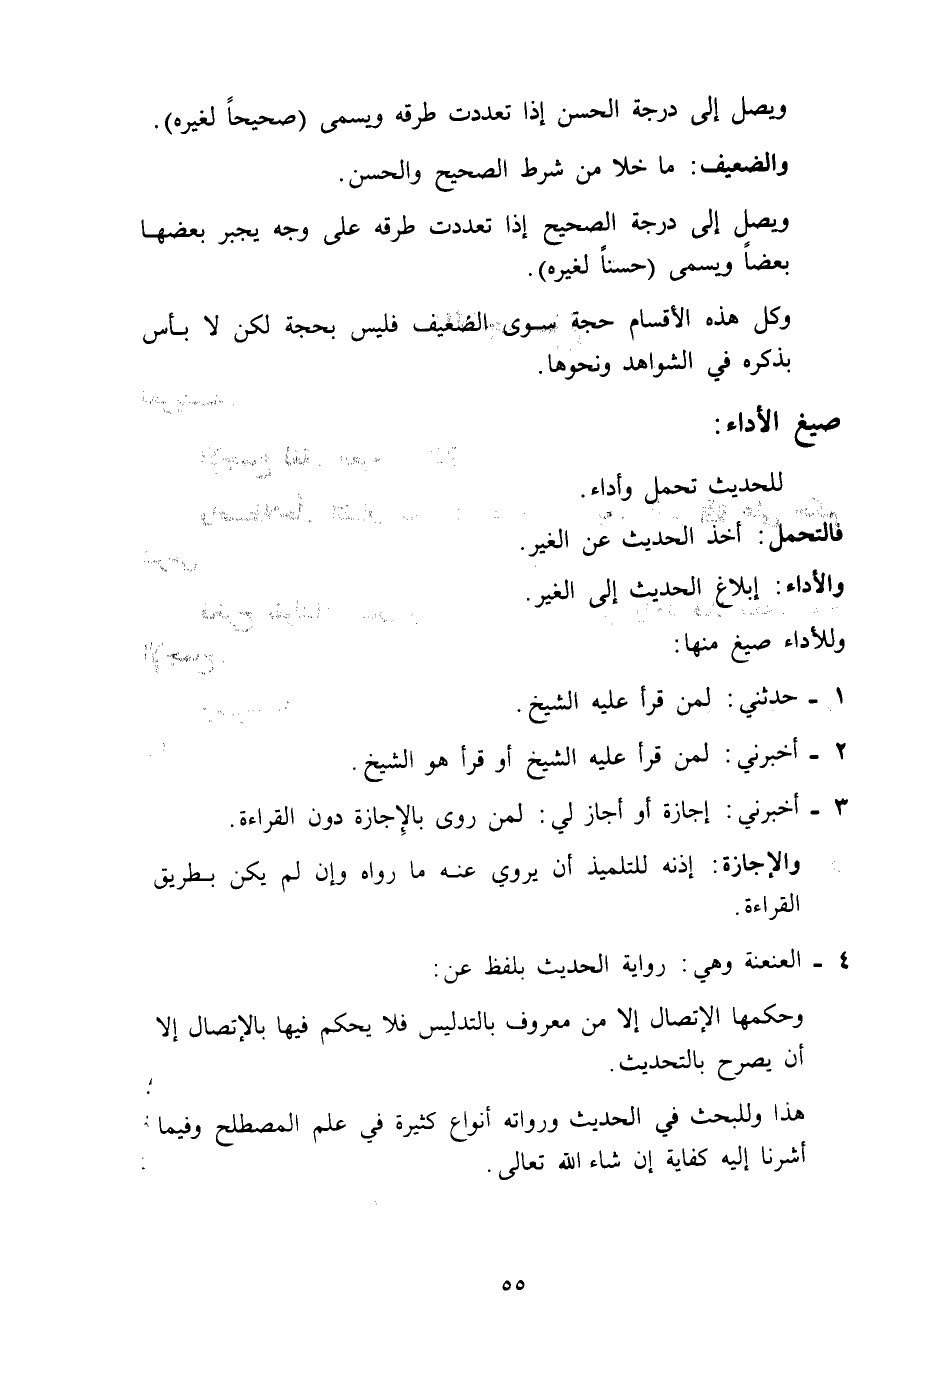 ويصل إلى درجة الحسن إذا تعددت طرقه ويسمى (صحيحاً لغيره).
والضعيف: ما خلا من شرط الصحيح والحسن.
ويصل إلى درجة الصحيح إذا تعددت طرقه على وجه يجبر بعضها
بعضاً ويسمى (حسناً لغيره).
وكل هذه الأقسام حجة سوى الضعيف فليس بحجة لكن لا بأس
بذكره في الشواهد ونحوها.
صيغ الأداء:
للحديث تحمل وأداء.
فالتحمل: أخذ الحديث عن الغير.
والأداء: إبلاغ الحديث إلى الغير.
وللأداء صيغ منها:
١ - حدثني: لمن قرأ عليه الشيخ.
٢ - أخبرني: لمن قرأ عليه الشيخ أو قرأ هو الشيخ.
٣ - أخبرني: إجازة أو أجاز لي: لمن روى بالإجازة دون القراءة.
والإجازة: إذنه للتلميذ أن يروي عنه ما رواه وإن لم يكن بطريق
القراءة.
٤ - العنعنة وهي: رواية الحديث بلفظ عن:
وحكمها الإتصال إلا من معروف بالتدليس فلا يحكم فيها بالإتصال إلا
أن يصرح بالتحديث.
هذا وللبحث في الحديث ورواته أنواع كثيرة في علم المصطلح وفيما
أشرنا إليه كفاية إن شاء الله تعالى.
٥٥